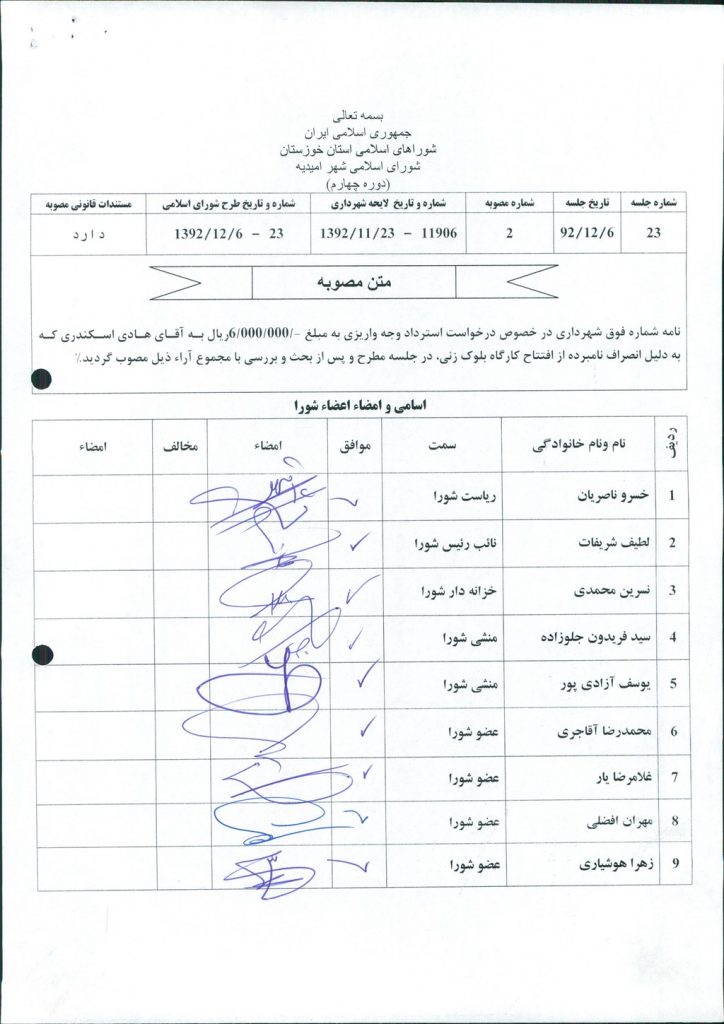 بسمه تعالی
جمهوری اسلامی ایران
شوراهای اسلامی استان خوزستان
شورای اسلامی شهر امیدیه
(دوره چهارم)
شماره جلسه تاریخ جلسه شماره مصوبه شماره و تاریخ لایحه شهرداری شماره و تاریخ طرح شورای اسلامی مستندات قانونی مصوبه
23 92/12/6 2 11906 - 1392/11/23 23 - 1392/12/6 دارد
متن مصوبه
نامه شماره فوق شهرداری در خصوص درخواست استرداد وجه واریزی به مبلغ -/6/000/000ریال به آقای هادی اسکندری که
به دلیل انصراف نامبرده از افتتاح کارگاه بلوک زنی، در جلسه مطرح و پس از بحث و بررسی با مجموع آراء ذیل مصوب گردید.٪
اسامی و امضاء اعضاء شورا
ردیف نام ونام خانوادگی سمت موافق امضاء مخالف امضاء
1 خسرو ناصریان ریاست شورا
2 لطیف شریفات نائب رئیس شورا
3 نسرین محمدی خزانه دار شورا
4 سید فریدون جلوزاده منشی شورا
5 یوسف آزادی پور منشی شورا
6 محمدرضا آقاجری عضو شورا
7 غلامرضا یار عضو شورا
8 مهران افضلی عضو شورا
9 زهرا هوشیاری عضو شورا